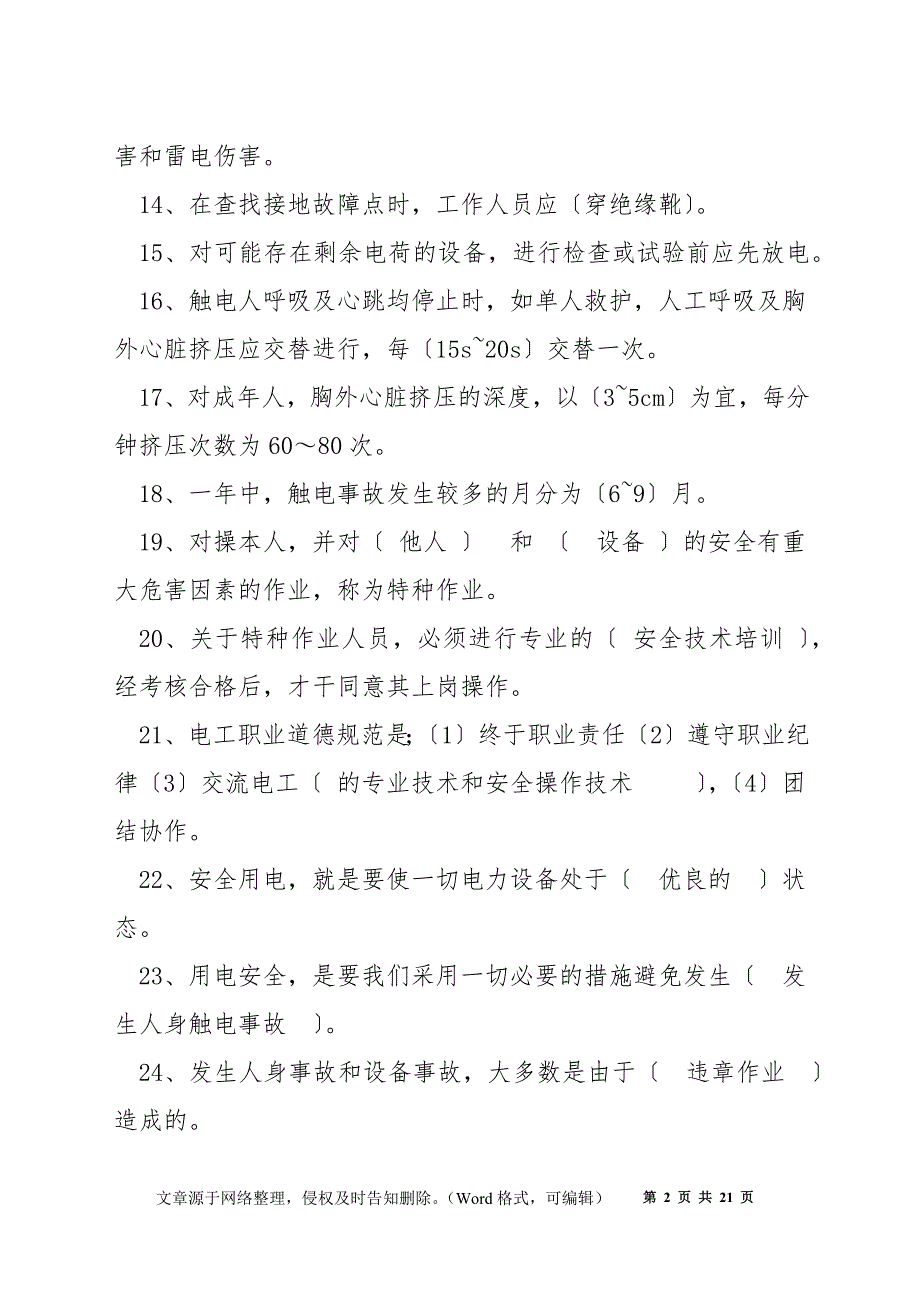 害和雷电伤害。
14、在查找接地故障点时，工作人员应〔穿绝缘靴〕。
15、对可能存在剩余电荷的设备，进行检查或试验前应先放电。
16、触电人呼吸及心跳均停止时，如单人救护，人工呼吸及胸
外心脏挤压应交替进行，每〔15s~20s〕交替一次。
17、对成年人，胸外心脏挤压的深度，以〔3~5cm〕为宜，每分
钟挤压次数为60～80次。
18、一年中，触电事故发生较多的月分为〔6~9〕月。
19、对操本人，并对〔 他人 〕 和 〔 设备 〕的安全有重
大危害因素的作业，称为特种作业。
20、关于特种作业人员，必须进行专业的〔 安全技术培训 〕，
经考核合格后，才干同意其上岗操作。
21、电工职业道德规范是;〔1〕终于职业责任〔2〕遵守职业纪
律〔3〕交流电工〔 的专业技术和安全操作技术 〕，〔4〕团
结协作。
22、安全用电，就是要使一切电力设备处于〔 优良的 〕状
态。
23、用电安全，是要我们采用一切必要的措施避免发生〔 发
生人身触电事故 〕。
24、发生人身事故和设备事故，大多数是由于〔 违章作业 〕
造成的。
文章源于网络整理，侵权及时告知删除。（Word 格式，可编辑） 第 2 页 共 21 页